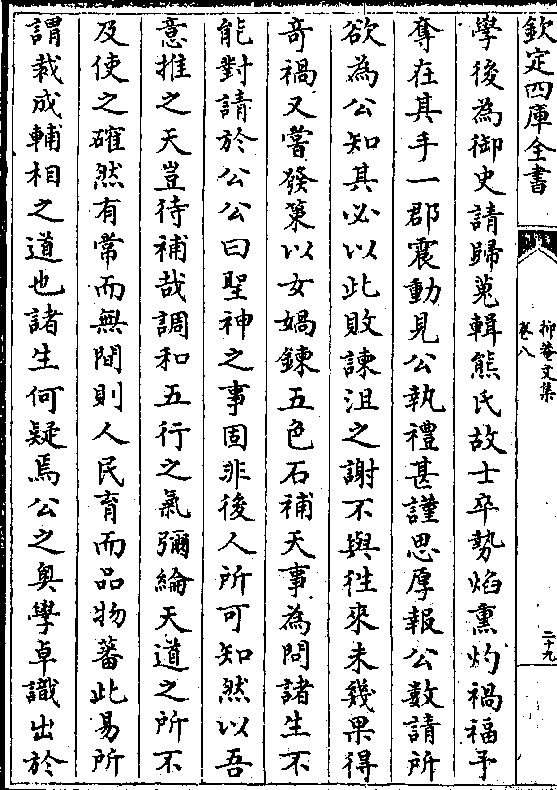 欽定四庫全書
抑菴文集
卷八
二十九
學後為御史請歸蒐輯熊氏故士卒勢焰熏灼禍福予
奪在其手一郡震動見公執禮甚謹思厚報公數請所
欲為公知其必以此敗諫沮之謝不與徃來未幾果得
奇禍又嘗發策以女媧鍊五色石補天事為問諸生不
能對請於公公曰聖神之事固非後人所可知然以吾
意推之天豈待補哉調和五行之氣彌綸天道之所不
及使之確然有常而無間則人民育而品物蕃此易所
謂裁成輔相之道也諸生何疑焉公之奥學卓識出於